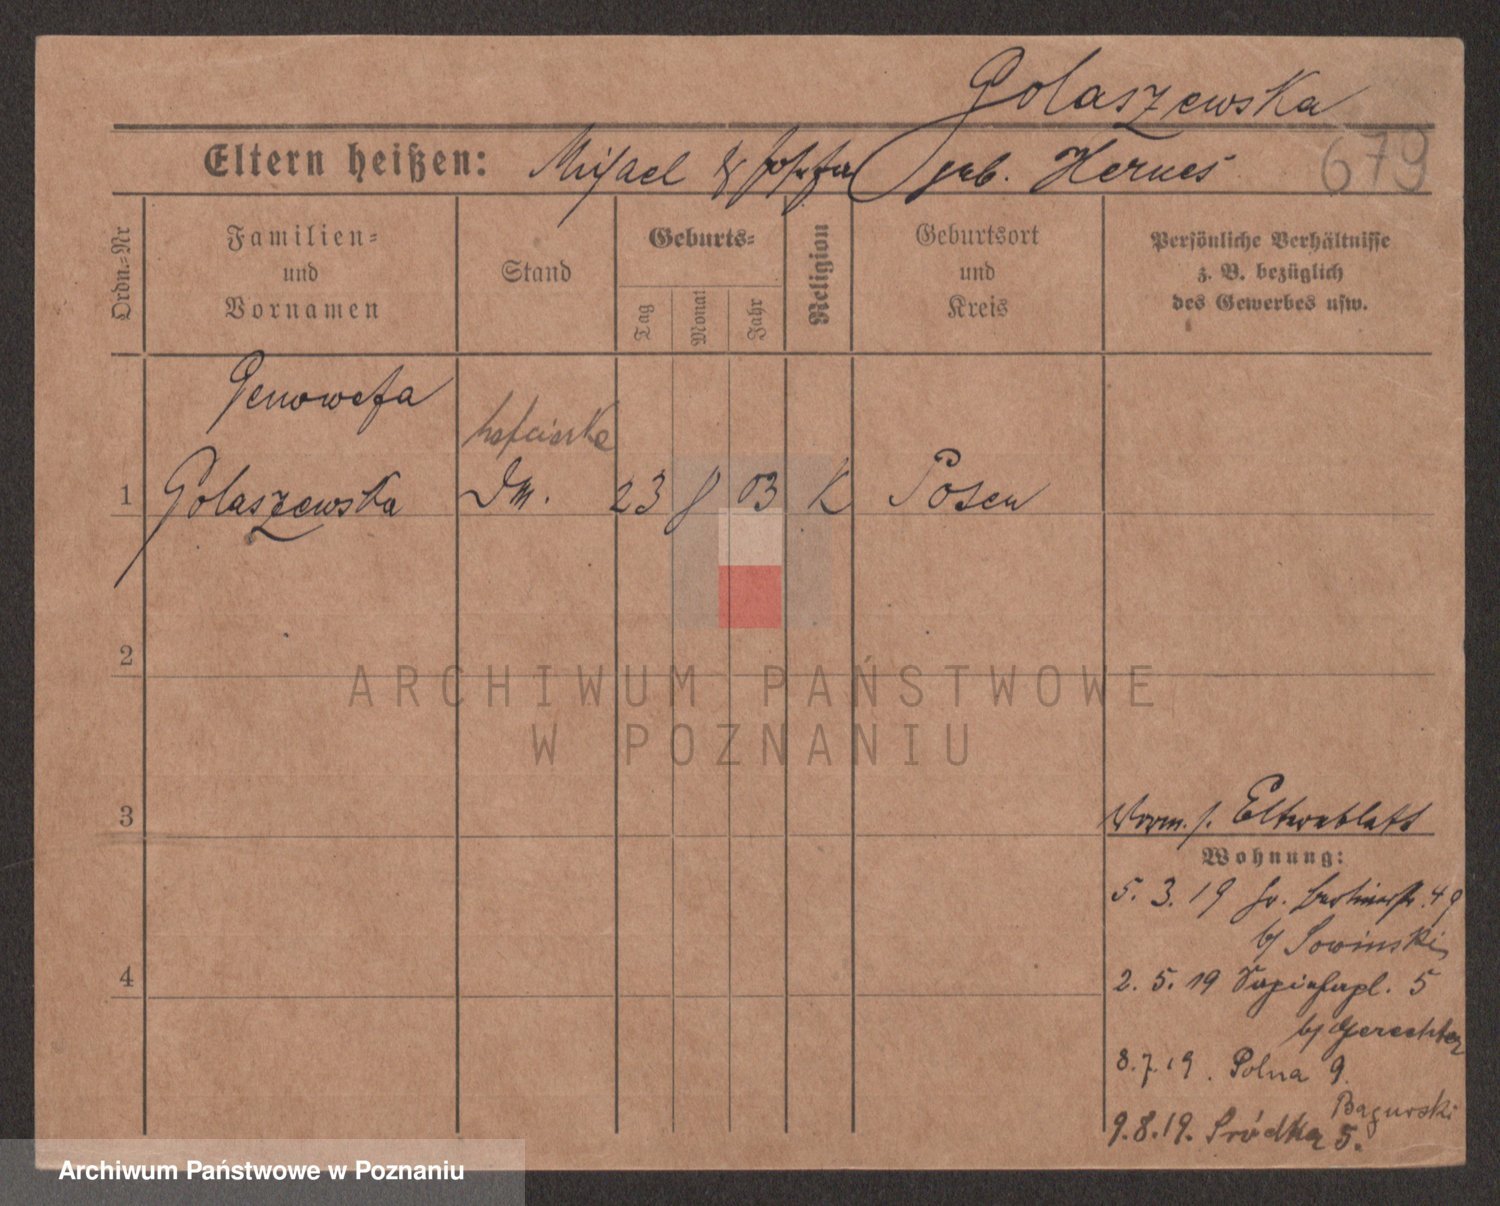 Golaszewska
Eltern heißen: Misael & Josefa geb. Hernes
679
Ordn.-Nr
Familien- und Vornamen
Stand
Geburts-
Tag
Monat
Jahr
Religion
Geburtsort und Kreis
Persönliche Verhältnisse
z. B. bezüglich
des Gewerbes usw.
Genowefa
hafciarka
1 Golaszewska Dm. 23 8 03 K Posen
2
ARCHIWUM PAŃSTWOWE
W POZNANIU
3
Vorm. s. Elternblatt
Wohnung:
5. 3. 19 Gr. Berlinerstr. 49
b/ Sowinski
4
2. 5. 19 Sapiehapl. 5
b/ Gerechter
8.7.19. Polna 9.
Bagurski
9.8.19. Śródka 5.
Archiwum Państwowe w Poznaniu